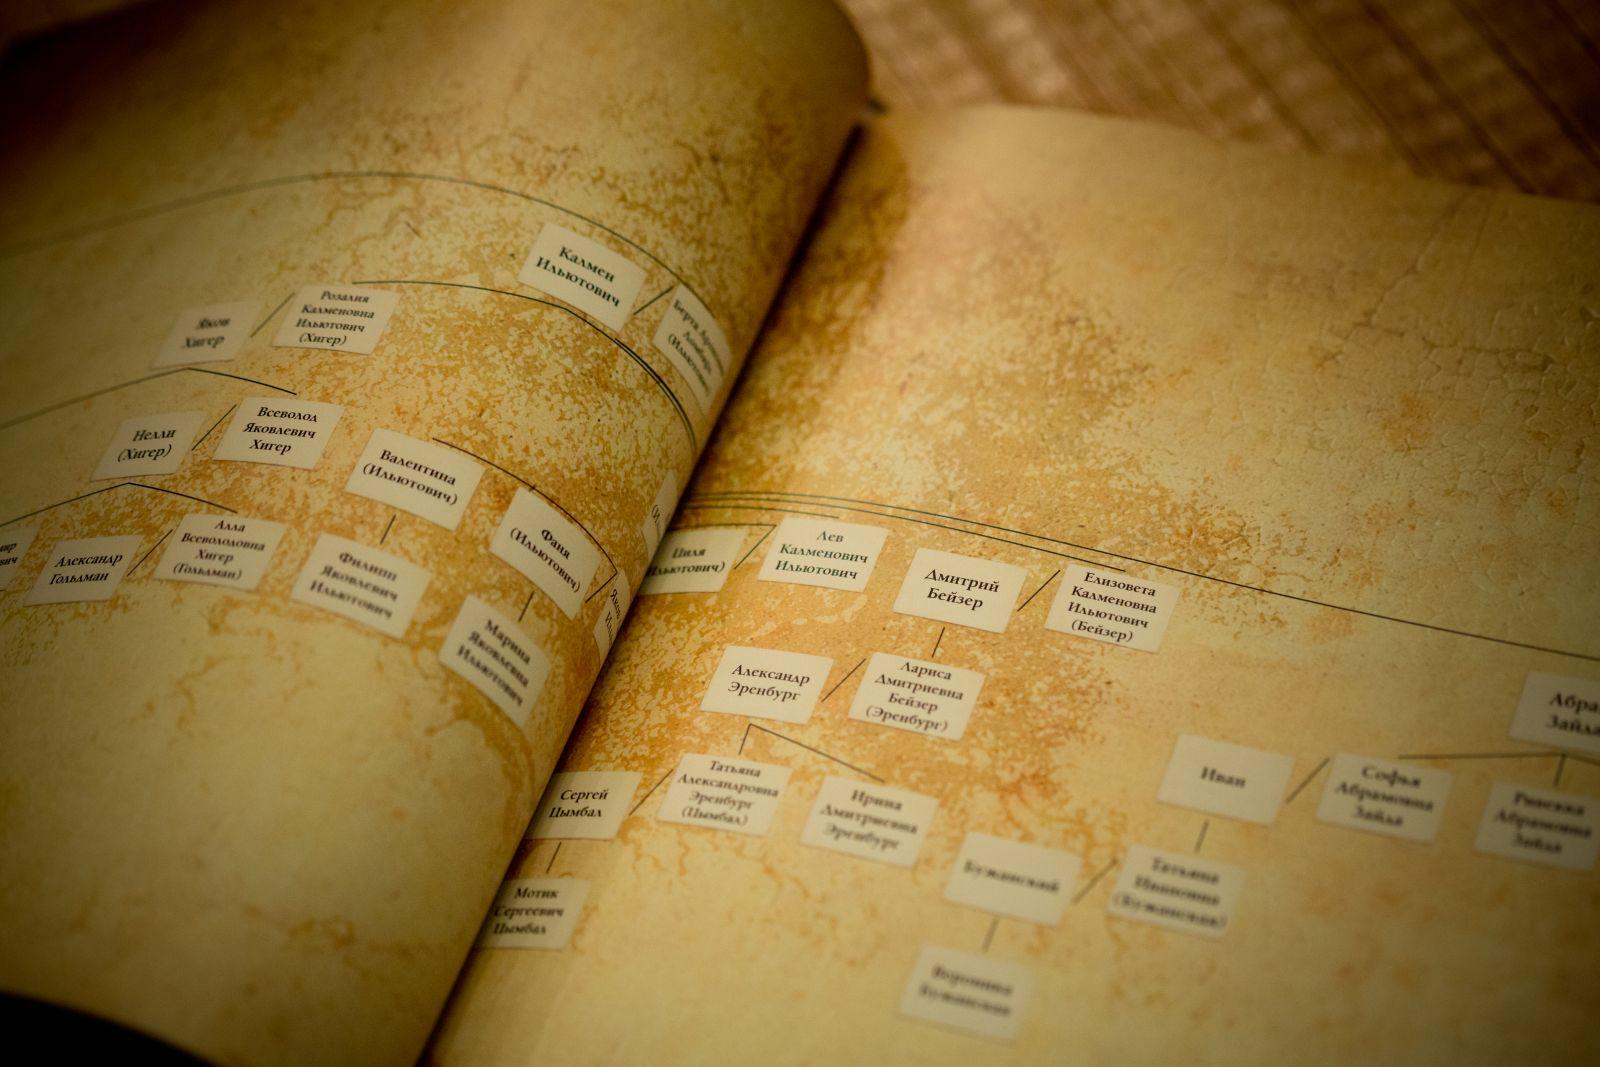 Калмен
Ильютович
Розалия
Калменовна
Ильютович
(Хигер)
Яков
Хигер
Берта
(Ильютович)
Всеволод
Яковлевич
Хигер
Нелли
(Хигер)
Валентина
(Ильютович)
Фаня
(Ильютович)
Александр
Гольдман
Алла
Всеволодовна
Хигер
(Гольдман)
Филипп
Яковлевич
Ильютович
Марина
Яковлевна
Ильютович
Циля
Ильютович)
Лев
Калменович
Ильютович
Дмитрий
Бейзер
Елизовета
Калменовна
Ильютович
(Бейзер)
Александр
Эренбург
Лариса
Дмитриевна
Бейзер
(Эренбург)
Сергей
Цымбал
Татьяна
Александровна
Эренбург
(Цымбал)
Ирина
Дмитриевна
Эренбург
Мотик
Сергеевич
Цымбал
Иван
Софья
Абрамовна
Зайла
Абра
Зайла
Абрамовна
Зайла
Бужанский
Татьяна
Ивановна
(Бужанская)
Вероника
Бужанская